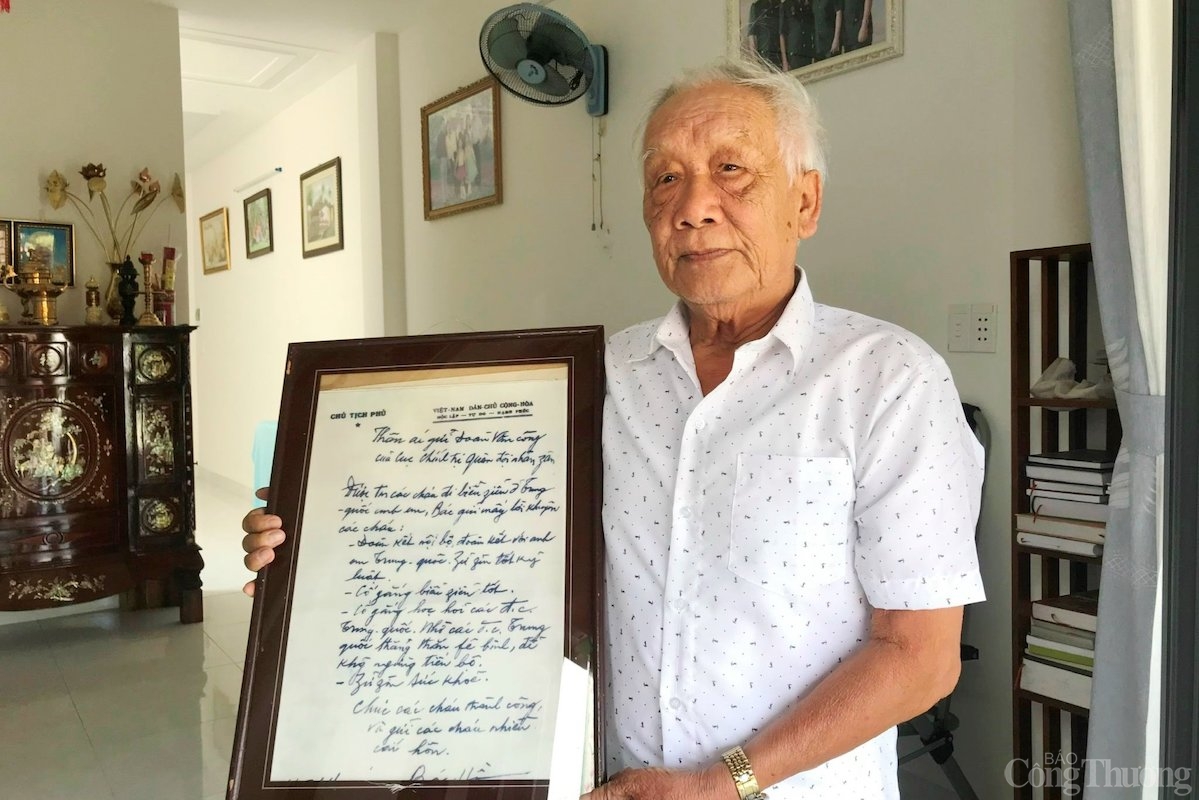 CHỦ TỊCH PHỦ
VIỆT-NAM DÂN-CHỦ CỘNG-HÒA
ĐỘC LẬP — TỰ DO — HẠNH PHÚC
Thân ái gửi Đoàn Văn công
của Cục Chính trị Quân đội nhân zân
Được tin các cháu đi biểu ziễn ở Trung
-quốc anh em, Bác gửi mấy lời khuyên
các cháu:
- Đoàn kết nội bộ, đoàn kết với anh
em Trung-quốc. Zữ zìn tốt kỷ
luật.
- Cố gắng biểu ziễn tốt.
- Cố gắng học hỏi các đ.c.
Trung-quốc. Nhờ các đ.c. Trung
quốc thẳng thắn fê bình, để
khg ngừng tiến bộ.
- Zữ zìn sức khoẻ.
Chúc các cháu thành công,
và gửi các cháu nhiều
cái hôn.
Bác Hồ
BÁO
CôngThương